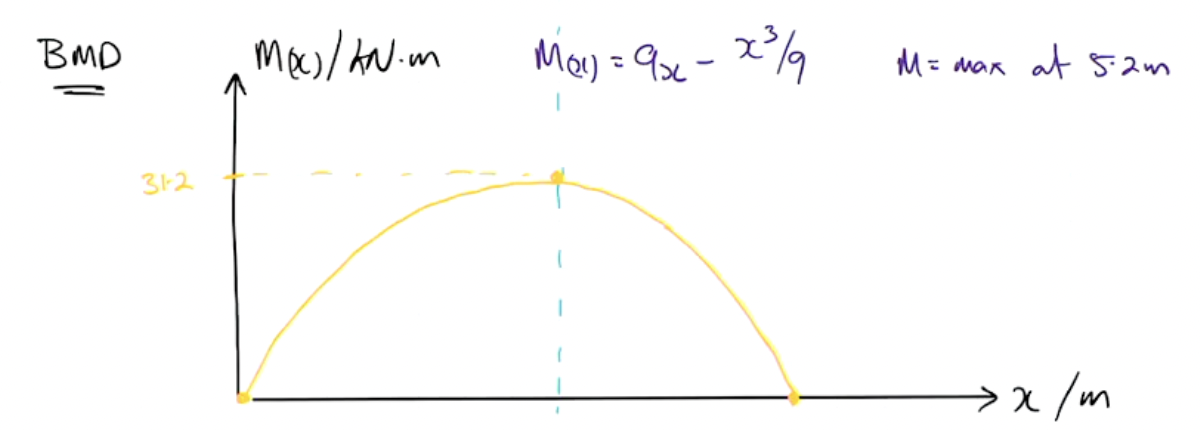 BMD
M(x)/kN·m
M(x) = 9x - x³/9
M = max at 5.2m
31.2
x/m